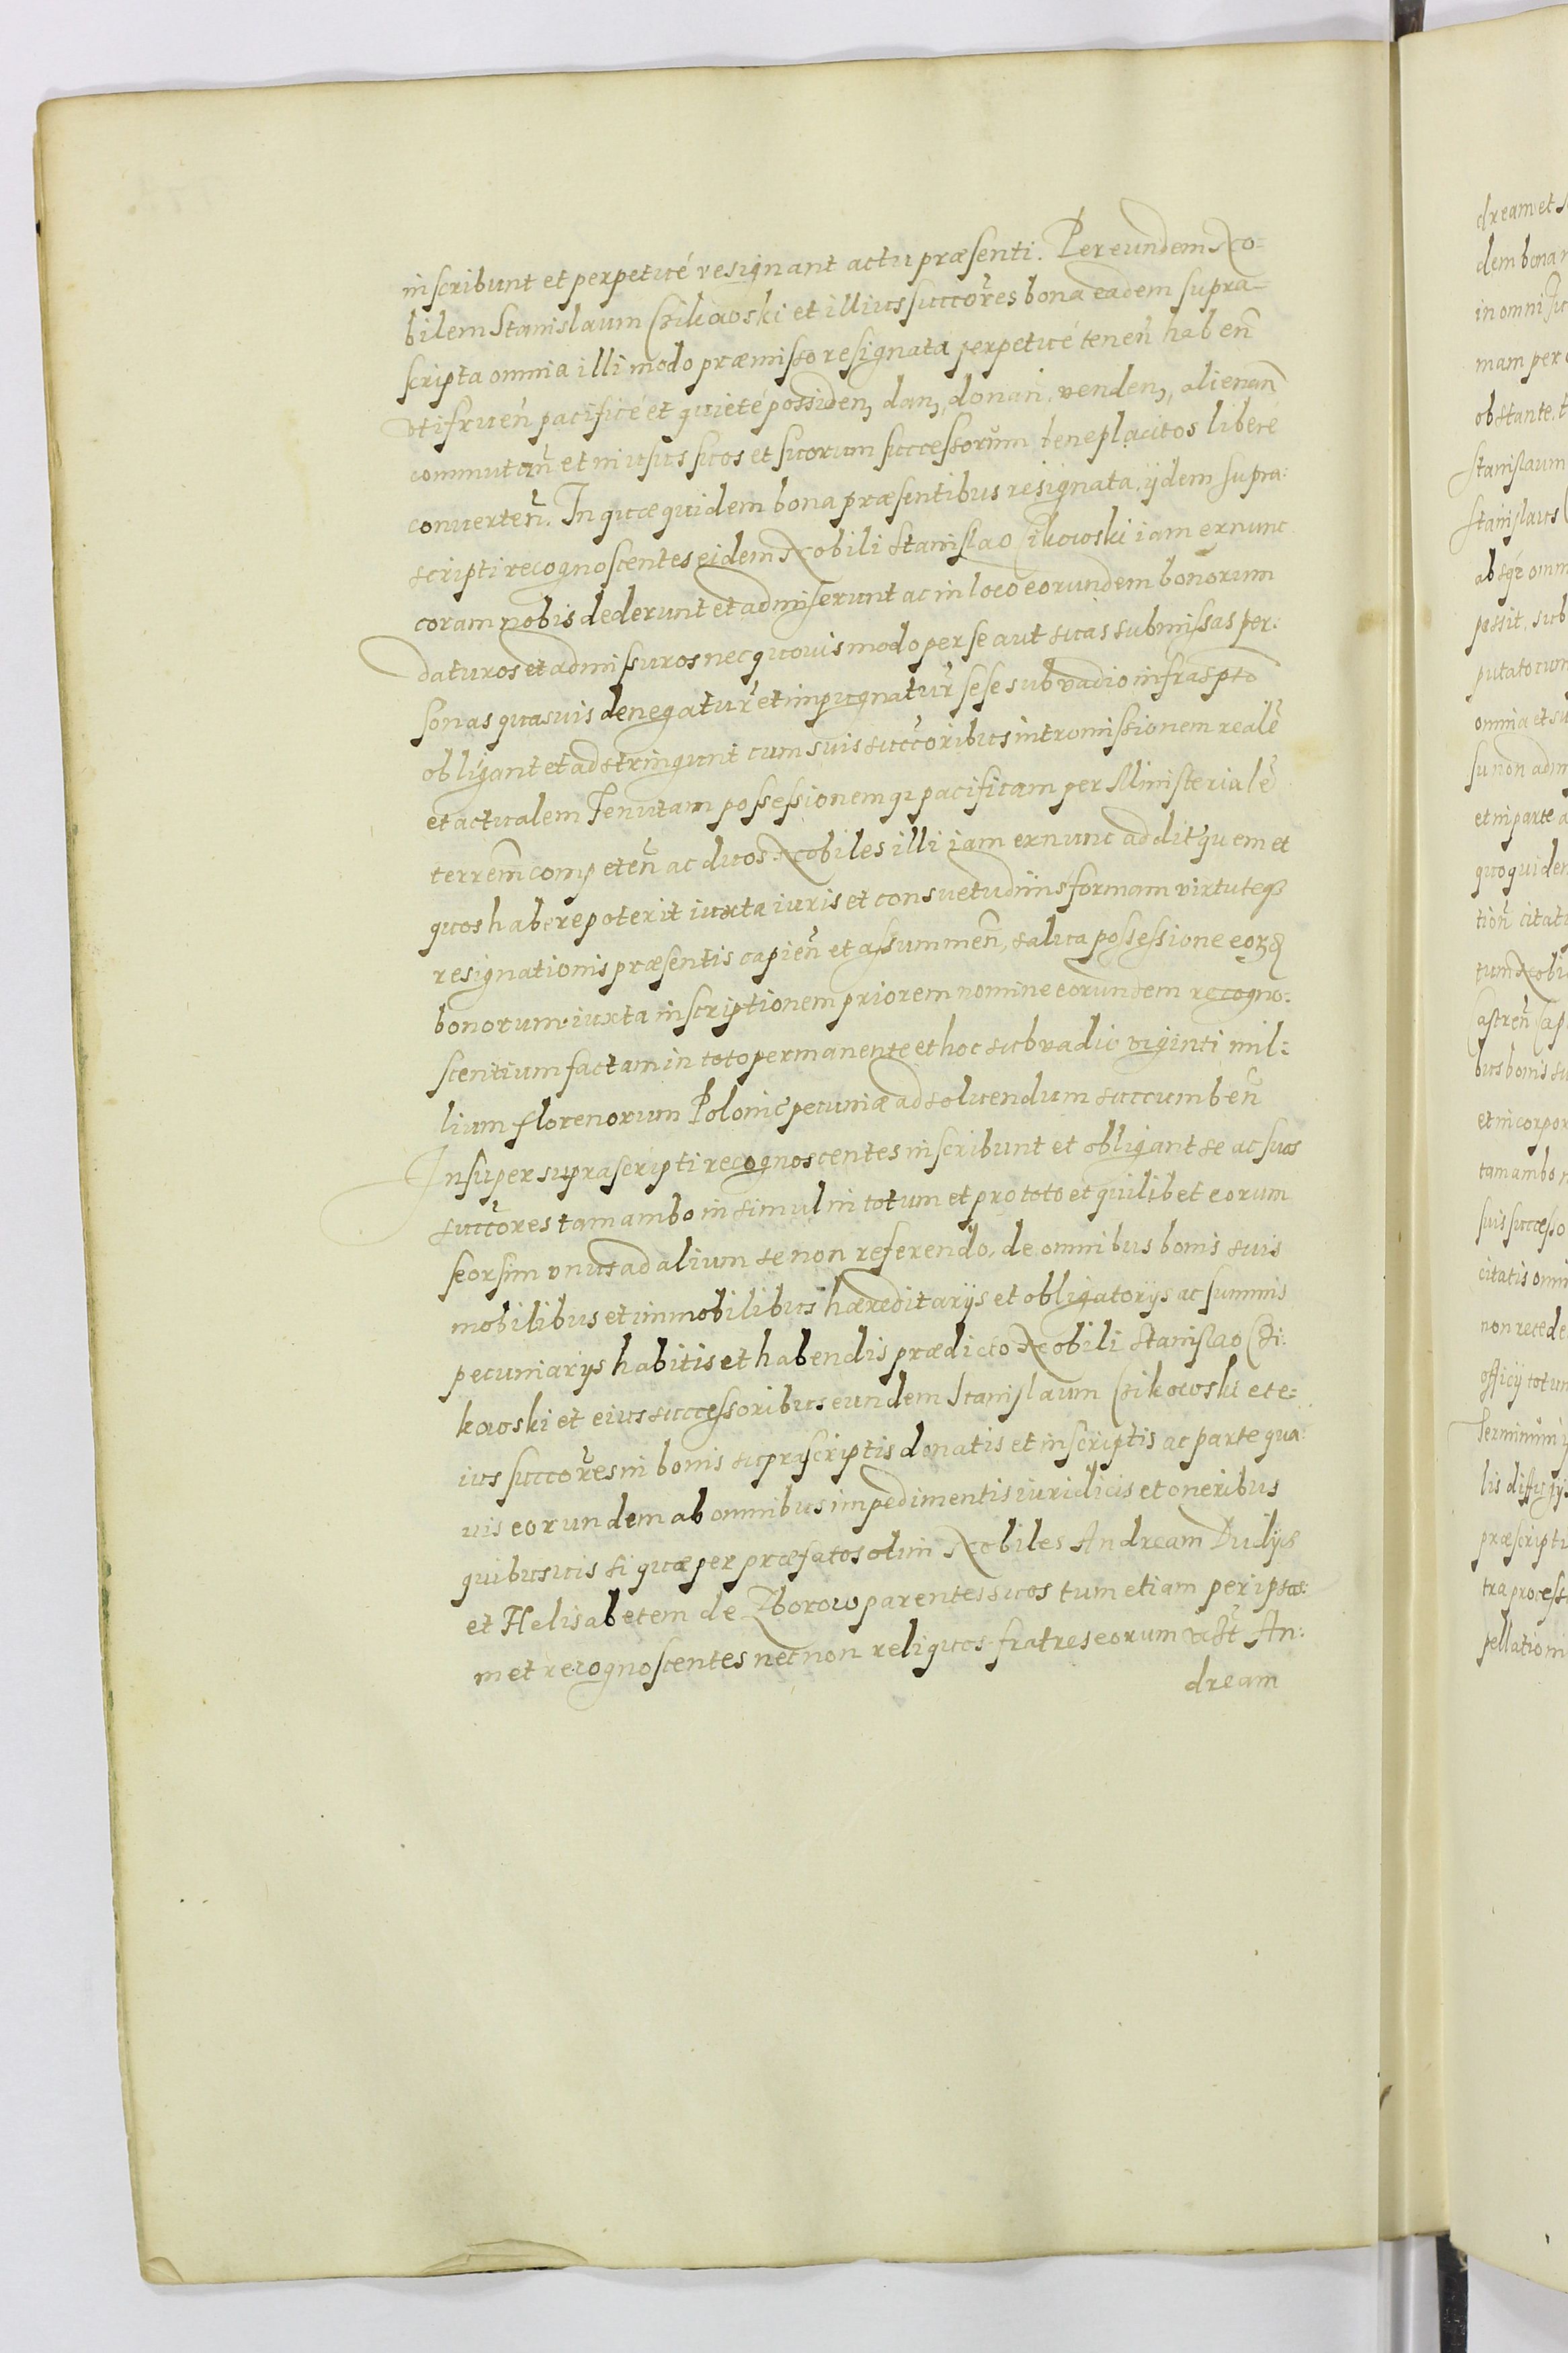 inscribunt et perpetué resignant actu præsenti. Per eundem No-
bilem Stanislaum Czikowski et illius succores bona eadem supra-
scripta omnia illi modo præmisso resignata perpetué tenen̄ haben̄
utifruen̄ pacificé et quieté possiden, dan, donan, venden, alienan̄
commutan̄ et in usus suos et suorum successorum beneplacitos liberé
conuerten̄. In quæ quidem bona præsentibus resignata, ijdem supra:
scripti recognoscentes eidem Nobili Stanislao Cikowski iam ex nunc
coram nobis dederunt et admiserunt ac in loco eorundem bonorum
daturos et admissuros nec quouis modo per se aut suas submissas per:
sonas quasuis denegatur̄ et impugnatur̄ sese sub vadio infraspto
obligant et adstringunt cum suis succoribus intromissionem realē
et actualem Tenutam possessionemq3 pacificam per Ministerialē
terrem̄ competen̄ ac duos Nobiles illi iam ex nunc addit quem et
quos habere poterit iuxta iuris et consuetudinis formam virtuteq3
resignationis præsentis capien̄ et assummen̄, salua possessione eor3
bonorum iuxta inscriptionem priorem nomine eorundem recogno:
scentium factam in toto permanente et hoc sub vadio viginti mil:
lium florenorum Polonic̄ pecuniæ ad soluendum succumben̄
Insuper suprascripti recognoscentes inscribunt et obligant se ac suos
succōres tam ambo in simul in totum et pro toto et quilibet eorum
seorsim vnus ad alium se non referendo, de omnibus bonis suis
mobilibus et immobilibus hæreditarijs et obligatorijs ac summis
pecuniarijs habitis et habendis prædicto Nobili Stanislao Czi:
kowski et eius successoribus eundem Stanislaum Czikowski et e:
ius succōres in bonis suprascriptis donatis et inscriptis ac parte qua:
uis eorundem ab omnibus impedimentis iuridicis et oneribus
quibusuis si quæ per præfatos olim Nobiles Andream Dudijs
et Helisabetem de Zborow parentes suos tum etiam per ipsos:
met recognoscentes necnon reliquos fratres eorum vi3t An:
dream